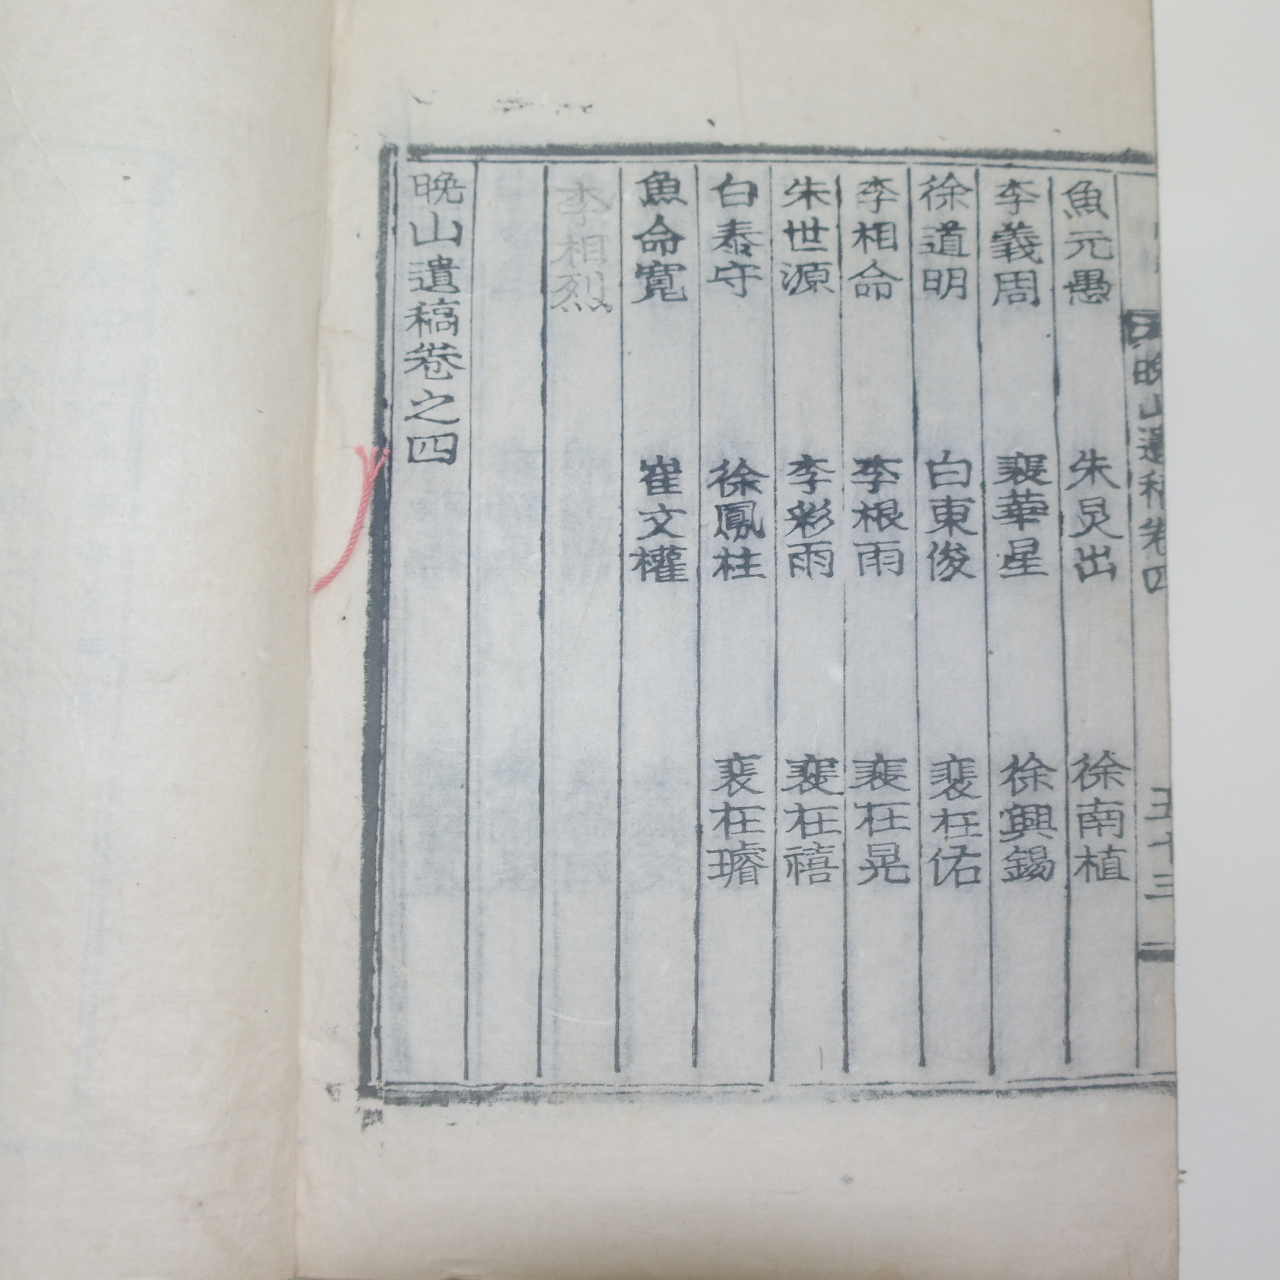 晩山遺稿卷四
五十三
魚元愚 朱炅出 徐南植
李義周 裵華星 徐興錫
徐道明 白東俊 裵枉佑
李相命 李根雨 裵枉晃
朱世源 李彩雨 裵枉禧
白泰守 徐鳳柱 裵枉璿
魚命寬 崔文權
李相烈
晩山遺稿卷之四